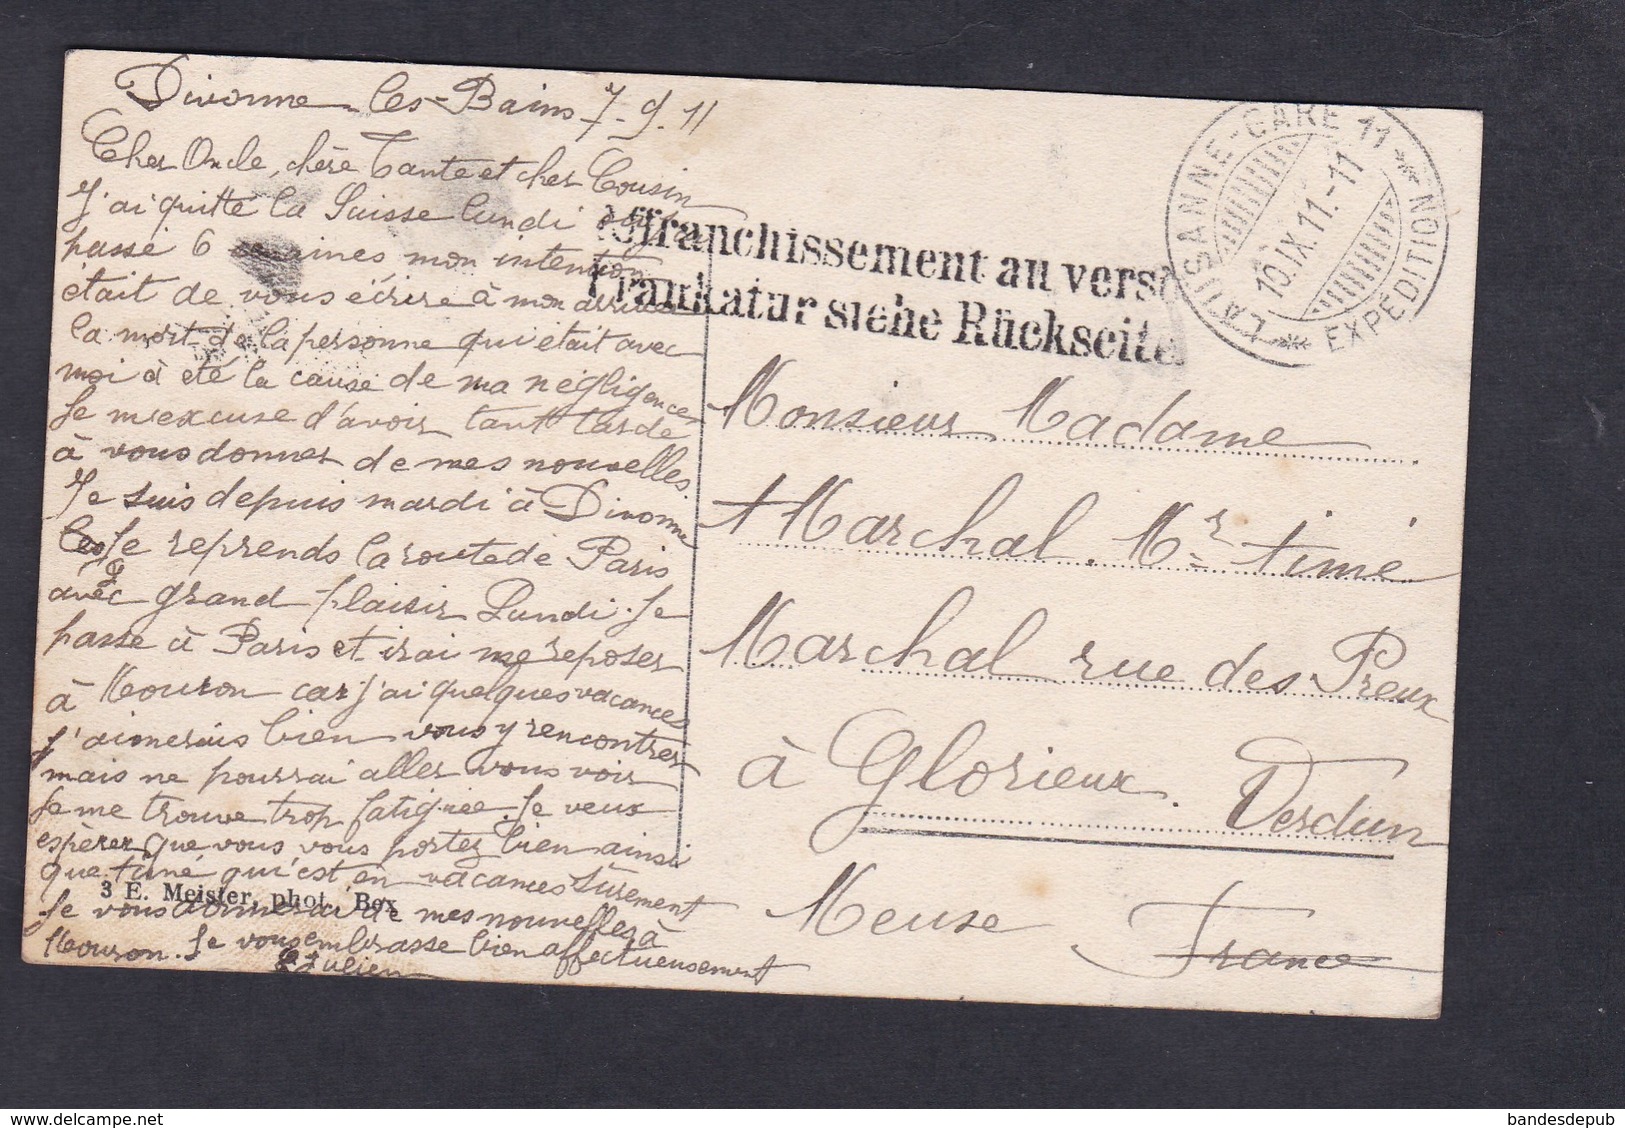 Divonne les-Bains 7-9.11
Cher Oncle, chère Tante et cher Cousin
J'ai quitté la Suisse lundi
passé 6 semaines mon intention
était de vous écrire à mon arrivée
la mort de la personne qui était avec
moi à été la cause de ma négligence
Je m'excuse d'avoir tant tardé
à vous donner de mes nouvelles.
Je suis depuis mardi à Divonne
les Je reprends la route de Paris
avec grand plaisir Lundi. Je
passe à Paris et irai me reposer
à Mouron car j'ai quelques vacances
j'aimerais bien vous y rencontrer
mais ne pourrai aller vous voir
Je me trouve trop fatiguée. Je veux
espérer que vous vous portez bien ainsi
que timé qui est en vacances sûrement
Je vous donnerai de mes nouvelles à
Mouron. Je vous embrasse bien affectueusement
Julien
3 E. Meister, phot. Bex
Affranchissement au verso
Frankatur siehe Rückseite
LAUSANNE-GARE 11 * EXPÉDITION *
10.IX.11.-11
Monsieur Madame
Marchal. Mr timé
Marchal rue des Preux
à Glorieux. Verdun
Meuse France
bandesdepub